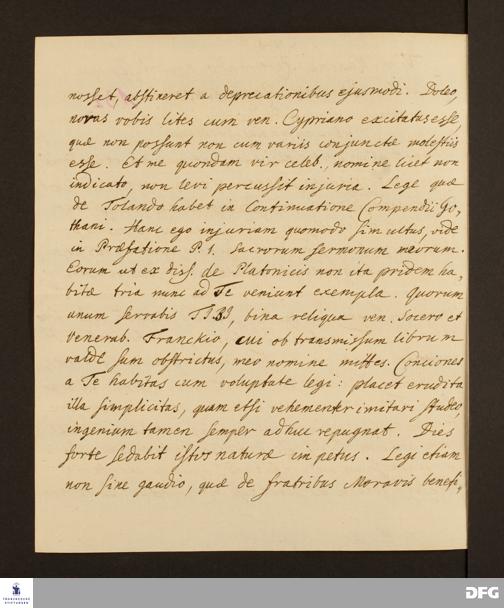 nosset, abstineret a deprecationibus ejusmodi. Doleo,
novas vobis lites cum ven. Cypriano excitatus esse,
quæ non possunt non cum variis conjunctæ molestiis
esse. Et me quondam vir celeb., nomine licet non
indicato, non levi percussit injuria. Lege quæ
de Tolando habet in Continuatione Compendii Go,
thani. Hanc ego injuriam quomodo sim ultus, vide
in Præfatione P. 1. Sacrorum sermonum meorum.
Eorum ut ex diss. de Platonicis non ita pridem ha,
bitæ tria nunc ad Te veniunt exempla. Quorum
unum servabis TIBI, bina reliqua ven. Socero et
Venerab. Franckio, cui ob transmissum librum
valde sum obstrictus, meo nomine mittes. Conciones
a Te habitas cum voluptate legi: placet erudita
illa simplicitas, quam etsi vehementer imitari studeo,
ingenium tamen semper adhuc repugnat. Dies
forte sedabit istos naturæ impetus. Legi etiam
non sine gaudio, quæ de fratribus Moravis benefi,
FRANCKESCHE
STIFTUNGEN
DFG